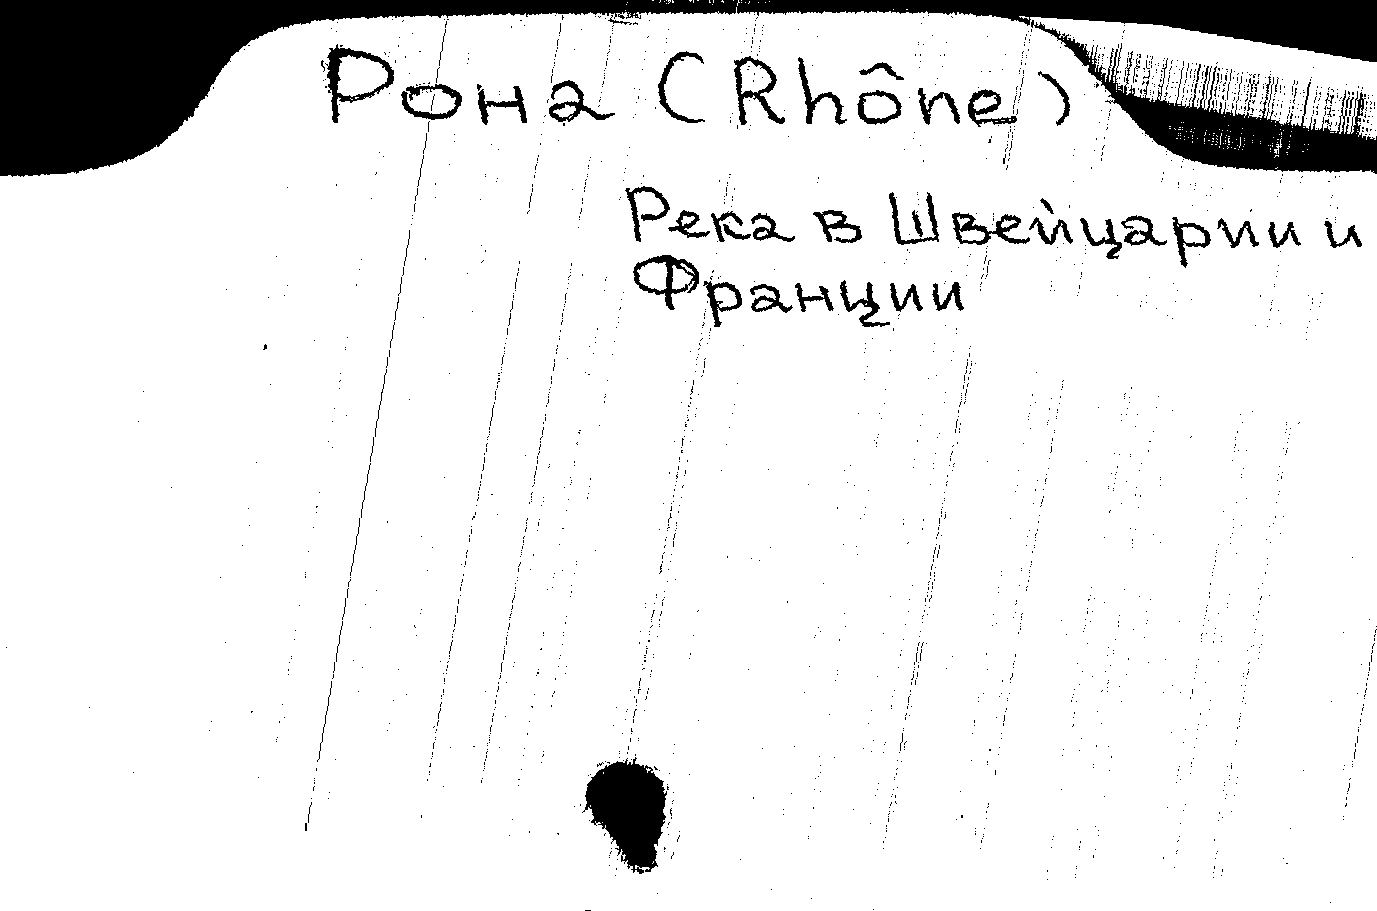 Рона (Rhône)
Река в Швейцарии и
Франции